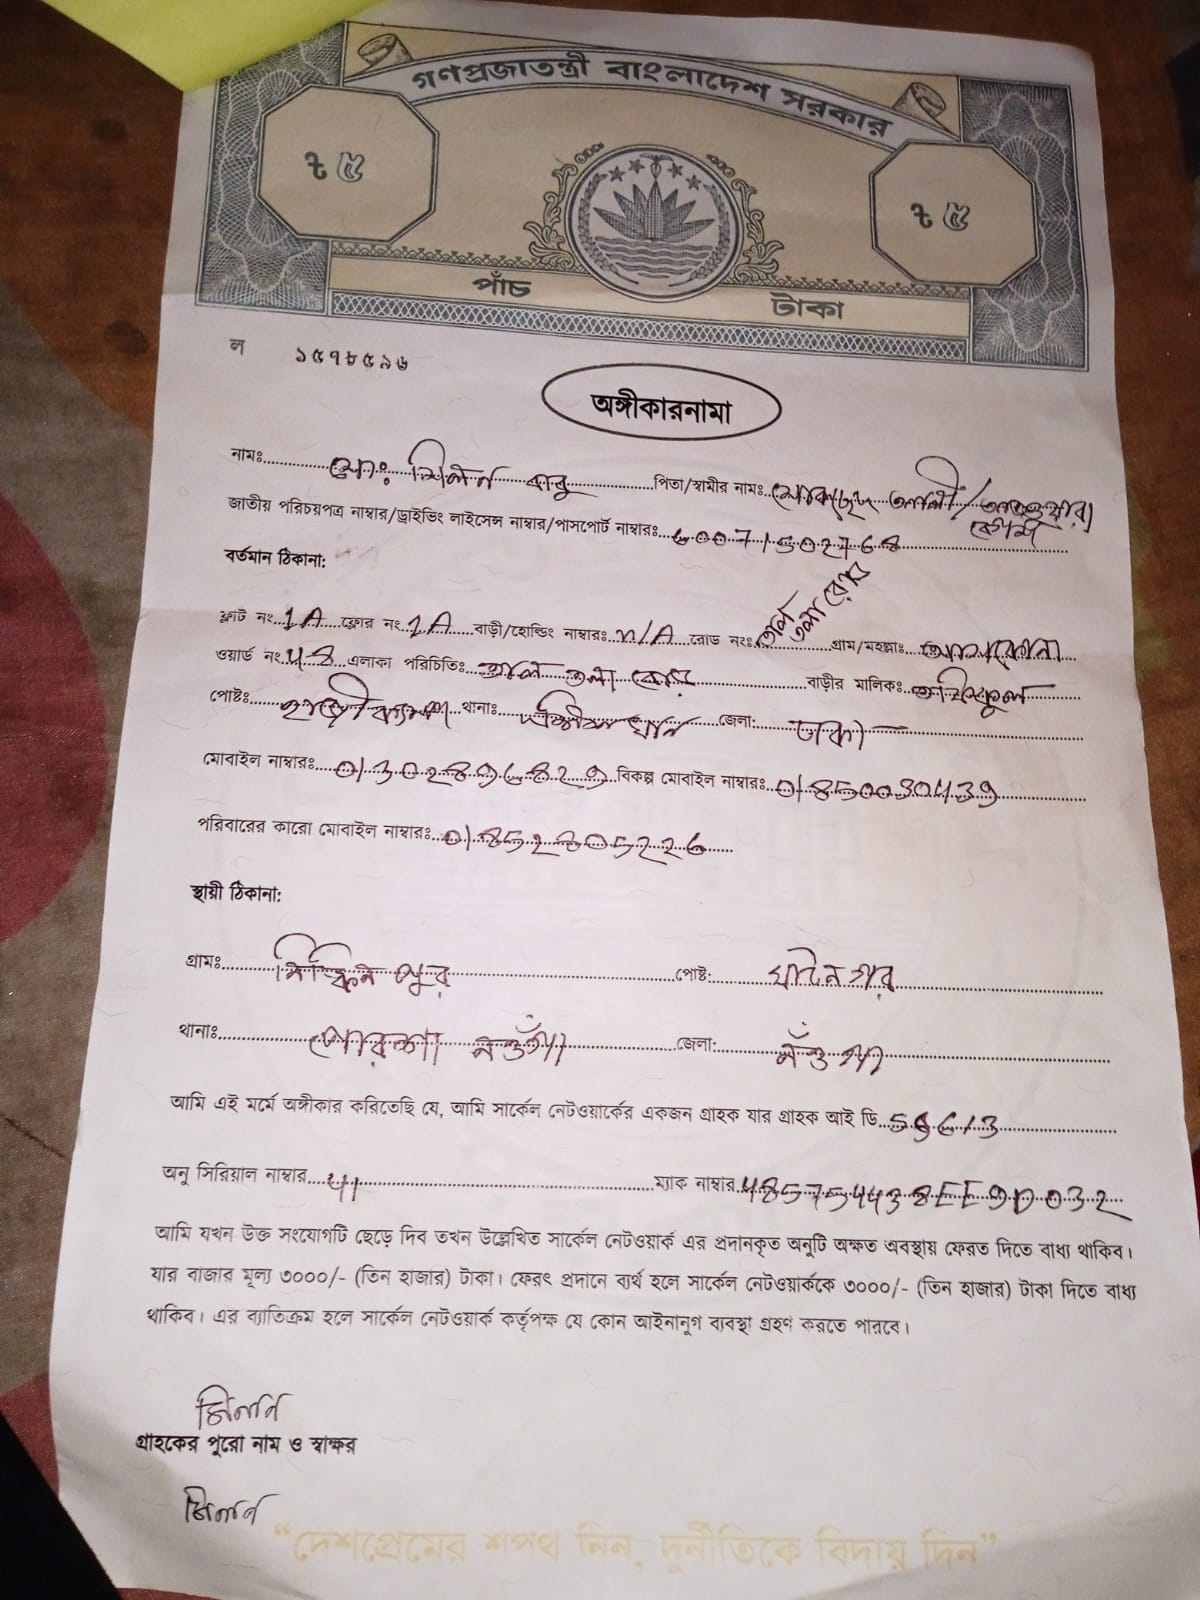 গণপ্রজাতন্ত্রী বাংলাদেশ সরকার
৳ ৫
৳ ৫
পাঁচ টাকা
ল ১৫৭৮৫৯৬
অঙ্গীকারনামা
নামঃ মোঃ মিলন বাবু পিতা/স্বামীর নামঃ আলী/
জাতীয় পরিচয়পত্র নাম্বার/ড্রাইভিং লাইসেন্স নাম্বার/পাসপোর্ট নাম্বারঃ
বর্তমান ঠিকানা:
ফ্লাট নং 1A ফ্লোর নং 1A বাড়ী/হোল্ডিং নাম্বারঃ n/A রোড নং তাল তলা রোড গ্রাম/মহল্লাঃ
ওয়ার্ড নং এলাকা পরিচিতিঃ তাল তলা রোড বাড়ীর মালিকঃ
পোষ্টঃ থানাঃ জেলা: ঢাকা
মোবাইল নাম্বারঃ বিকল্প মোবাইল নাম্বারঃ
পরিবারের কারো মোবাইল নাম্বারঃ
স্থায়ী ঠিকানা:
গ্রামঃ পোষ্ট:
থানাঃ পোরশা নওঁগা জেলা: নঁওগা
আমি এই মর্মে অঙ্গীকার করিতেছি যে, আমি সার্কেল নেটওয়ার্কের একজন গ্রাহক যার গ্রাহক আই ডি
অনু সিরিয়াল নাম্বার ম্যাক নাম্বার
আমি যখন উক্ত সংযোগটি ছেড়ে দিব তখন উল্লেখিত সার্কেল নেটওয়ার্ক এর প্রদানকৃত অনুটি অক্ষত অবস্থায় ফেরত দিতে বাধ্য থাকিব।
যার বাজার মূল্য ৩০০০/- (তিন হাজার) টাকা। ফেরৎ প্রদানে ব্যর্থ হলে সার্কেল নেটওয়ার্ককে ৩০০০/- (তিন হাজার) টাকা দিতে বাধ্য
থাকিব। এর ব্যাতিক্রম হলে সার্কেল নেটওয়ার্ক কর্তৃপক্ষ যে কোন আইনানুগ ব্যবস্থা গ্রহণ করতে পারবে।
মিলন
গ্রাহকের পুরো নাম ও স্বাক্ষর
মিলন
“দেশপ্রেমের শপথ নিন, দুর্নীতিকে বিদায় দিন”